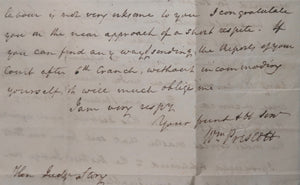 labour is not very irksome to you I congratulate
you on the near approach of a short respite. If
you can find any way sending the Reports of your
Court after 6th Cranch, without incommoding
yourself, it will much oblige me
I am very respy
Your friend &
Wm Prescott
Hon Judge Story